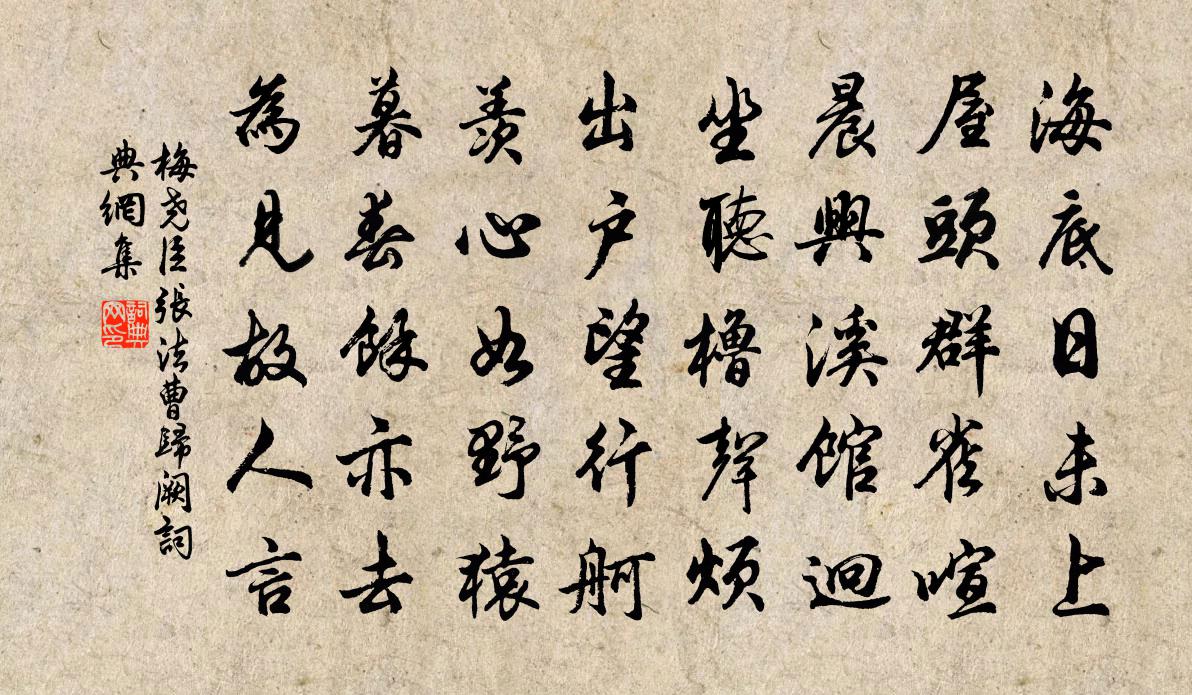 海底日未上
屋頭群雀喧
晨興溪館迥
坐聽櫓聲煩
出戶望行舸
羨心如野猿
暮春餘亦去
為見故人言
梅堯臣張法曹歸闕詞
典網集
詞典
网印